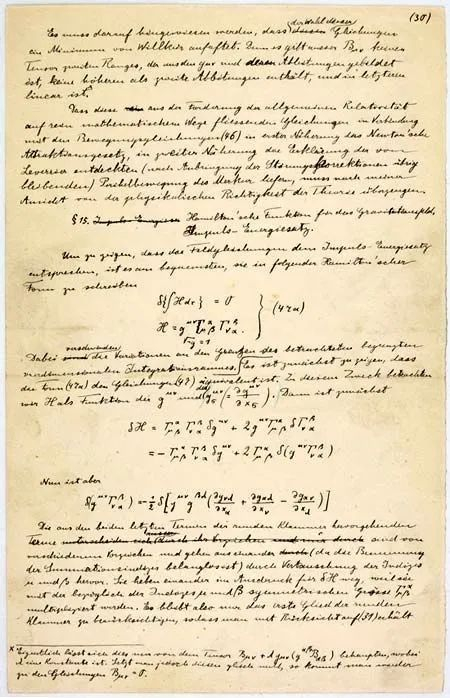 (30)
der Wahl dieser
Es muss darauf hingewiesen werden, dass diesen Gleichungen
ein Minimum von Willkür anhaftet. Denn es gibt ausser Bμν keinen
Tensor zweiten Ranges, der aus den gμν und deren Ableitungen gebildet
ist, keine höheren als zweite Ableitungen enthält, und in letzteren
linear ist.ˣ
Dass diese aus der Forderung der allgemeinen Relativität
auf rein mathematischem Wege fliessenden Gleichungen in Verbindung
mit den Bewegungsgleichungen (46) in erster Näherung das Newton'sche
Attraktionsgesetz, in zweiter Näherung die Erklärung der von
Leverrier entdeckten (nach Anbringung der Störungskorrektionen übrig
bleibenden) Perihelbewegung des Merkur liefern, muss nach meiner
Ansicht von der physikalischen Richtigkeit der Theorie überzeugen.
§ 15. Impuls-Energiesa Hamilton'sche Funktion für das Gravitationsfeld,
Impuls-Energiesatz.
Um zu zeigen, dass die Feldgleichungen dem Impuls-Energiesatz
entsprechen, ist es am bequemsten, sie in folgender Hamilton'scher
Form zu schreiben
δ{∫H dτ} = 0
H = g^μν Γ^α_μβ Γ^β_να } (47a)
√-g = 1
verschwinden
Dabei die Variationen an den Grenzen des betrachteten begrenzten
vierdimensionalen Integrationsraumes. Es ist zunächst zu zeigen, dass
die Form (47a) den Gleichungen (47) äquivalent ist. Zu diesem Zweck betrachten
wir H als Funktion der g^μν und der g^μν_σ (= ∂g^μν/∂x_σ). Dann ist zunächst
δH = Γ^α_μβ Γ^β_να δg^μν + 2 g^μν Γ^α_μβ δΓ^β_να
= − Γ^α_μβ Γ^β_να δg^μν + 2 Γ^α_μβ δ(g^μν Γ^β_να)
Nun ist aber
δ(g^μν Γ^β_να) = −½ δ[g^μν g^βλ (∂g_νλ/∂x_α + ∂g_αλ/∂x_ν − ∂g_αν/∂x_λ)]
Die aus den beiden letzten Termen der runden Klammer hervorgehenden
Terme sind von
verschiedenem Vorzeichen und gehen auseinander (da die Benennung
der Summationsindizes belanglos ist) durch Vertauschung der Indizes
μ und β hervor. Sie heben einander im Ausdruck für δH weg, weil sie
mit der bezüglich der Indizes μ und β symmetrischen Grösse Γ^α_μβ
multipliziert werden. Es bleibt also nur das erste Glied der runden
Klammer zu berücksichtigen, sodass man mit Rücksicht auf (31) erhält
× Eigentlich lässt sich dies nur von dem Tensor Bμν + λ gμν (g^αβ Bαβ) behaupten, wobei
λ eine Konstante ist. Setzt man jedoch diesen gleich null, so kommt man wieder
zu den Gleichungen Bμν = 0.